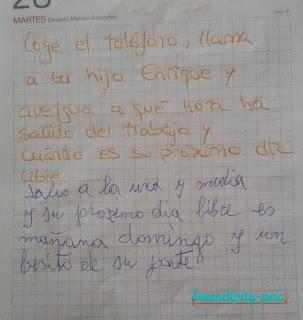 MARTES
Coge el teléfono, llama
a tu hijo Enrique y
averigua a qué hora ha
salido del trabajo y
cuándo es su próximo día
libre.
Salio a la una y media
y su proximo dia libre es
mañana domingo y un
besito de su parte
Serendipity-psic